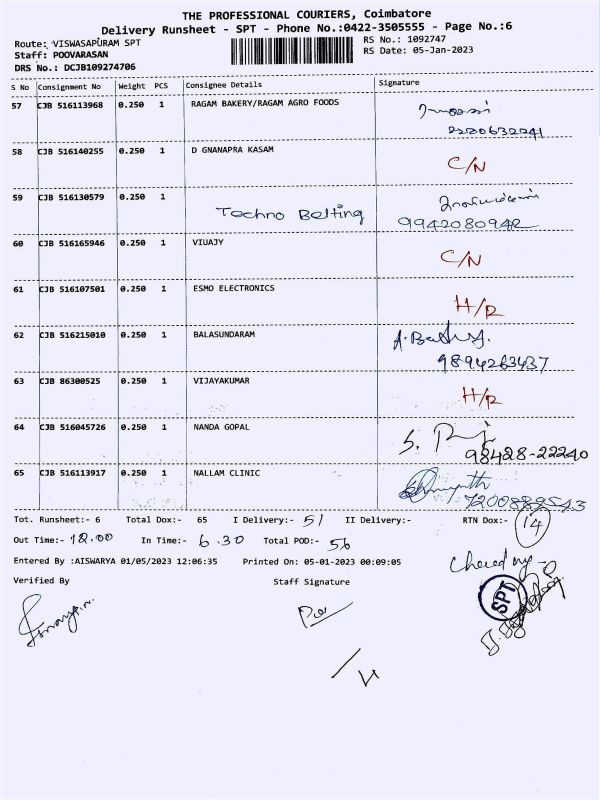 THE PROFESSIONAL COURIERS, Coimbatore
Delivery Runsheet - SPT - Phone No.:0422-3505555 - Page No.:6
Route: VISWASAPURAM SPT
RS No.: 1092747
Staff: POOVARASAN
RS Date: 05-Jan-2023
DRS No.: DCJB109274706
S No Consignment No Weight PCS Consignee Details Signature
57 CJB 516113968 0.250 1 RAGAM BAKERY/RAGAM AGRO FOODS
58 CJB 516140255 0.250 1 D GNANAPRA KASAM C/N
59 CJB 516130579 0.250 1
Techno Belting 9942080942
60 CJB 516165946 0.250 1 VIUAJY C/N
61 CJB 516107501 0.250 1 ESMO ELECTRONICS H/R
62 CJB 516215010 0.250 1 BALASUNDARAM
9894263437
63 CJB 86300525 0.250 1 VIJAYAKUMAR H/R
64 CJB 516045726 0.250 1 NANDA GOPAL
98428-22240
65 CJB 516113917 0.250 1 NALLAM CLINIC
7200889543
Tot. Runsheet:- 6 Total Dox:- 65 I Delivery:- 51 II Delivery:- RTN Dox:- 14
Out Time:- 12.00 In Time:- 6.30 Total POD:- 56
Entered By :AISWARYA 01/05/2023 12:06:35 Printed On: 05-01-2023 00:09:05
Verified By Staff Signature
SPT